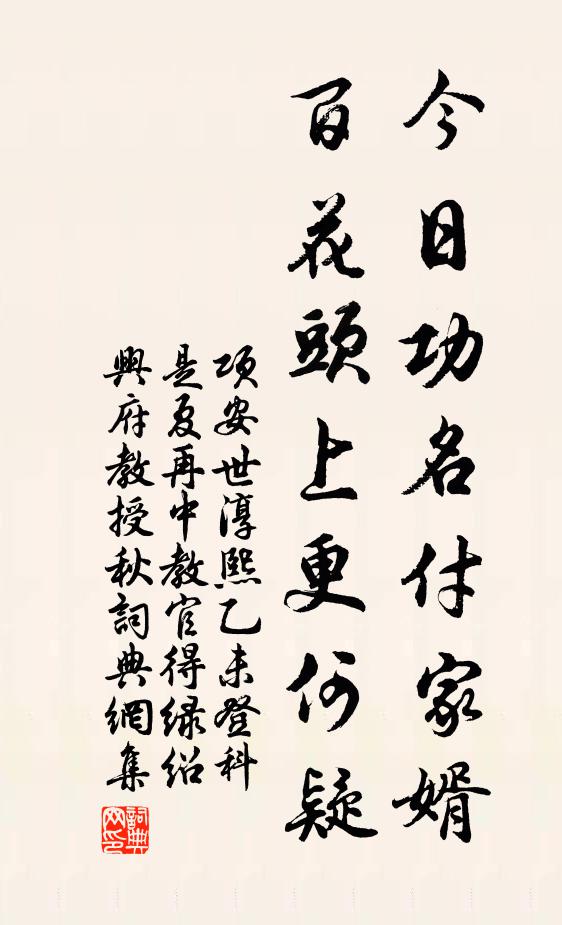 今日功名付家婿
百花頭上更何疑
項安世淳熙乙未登科
是夏再中教官得绿绍
興府教授秋詞典網集
詞典網印